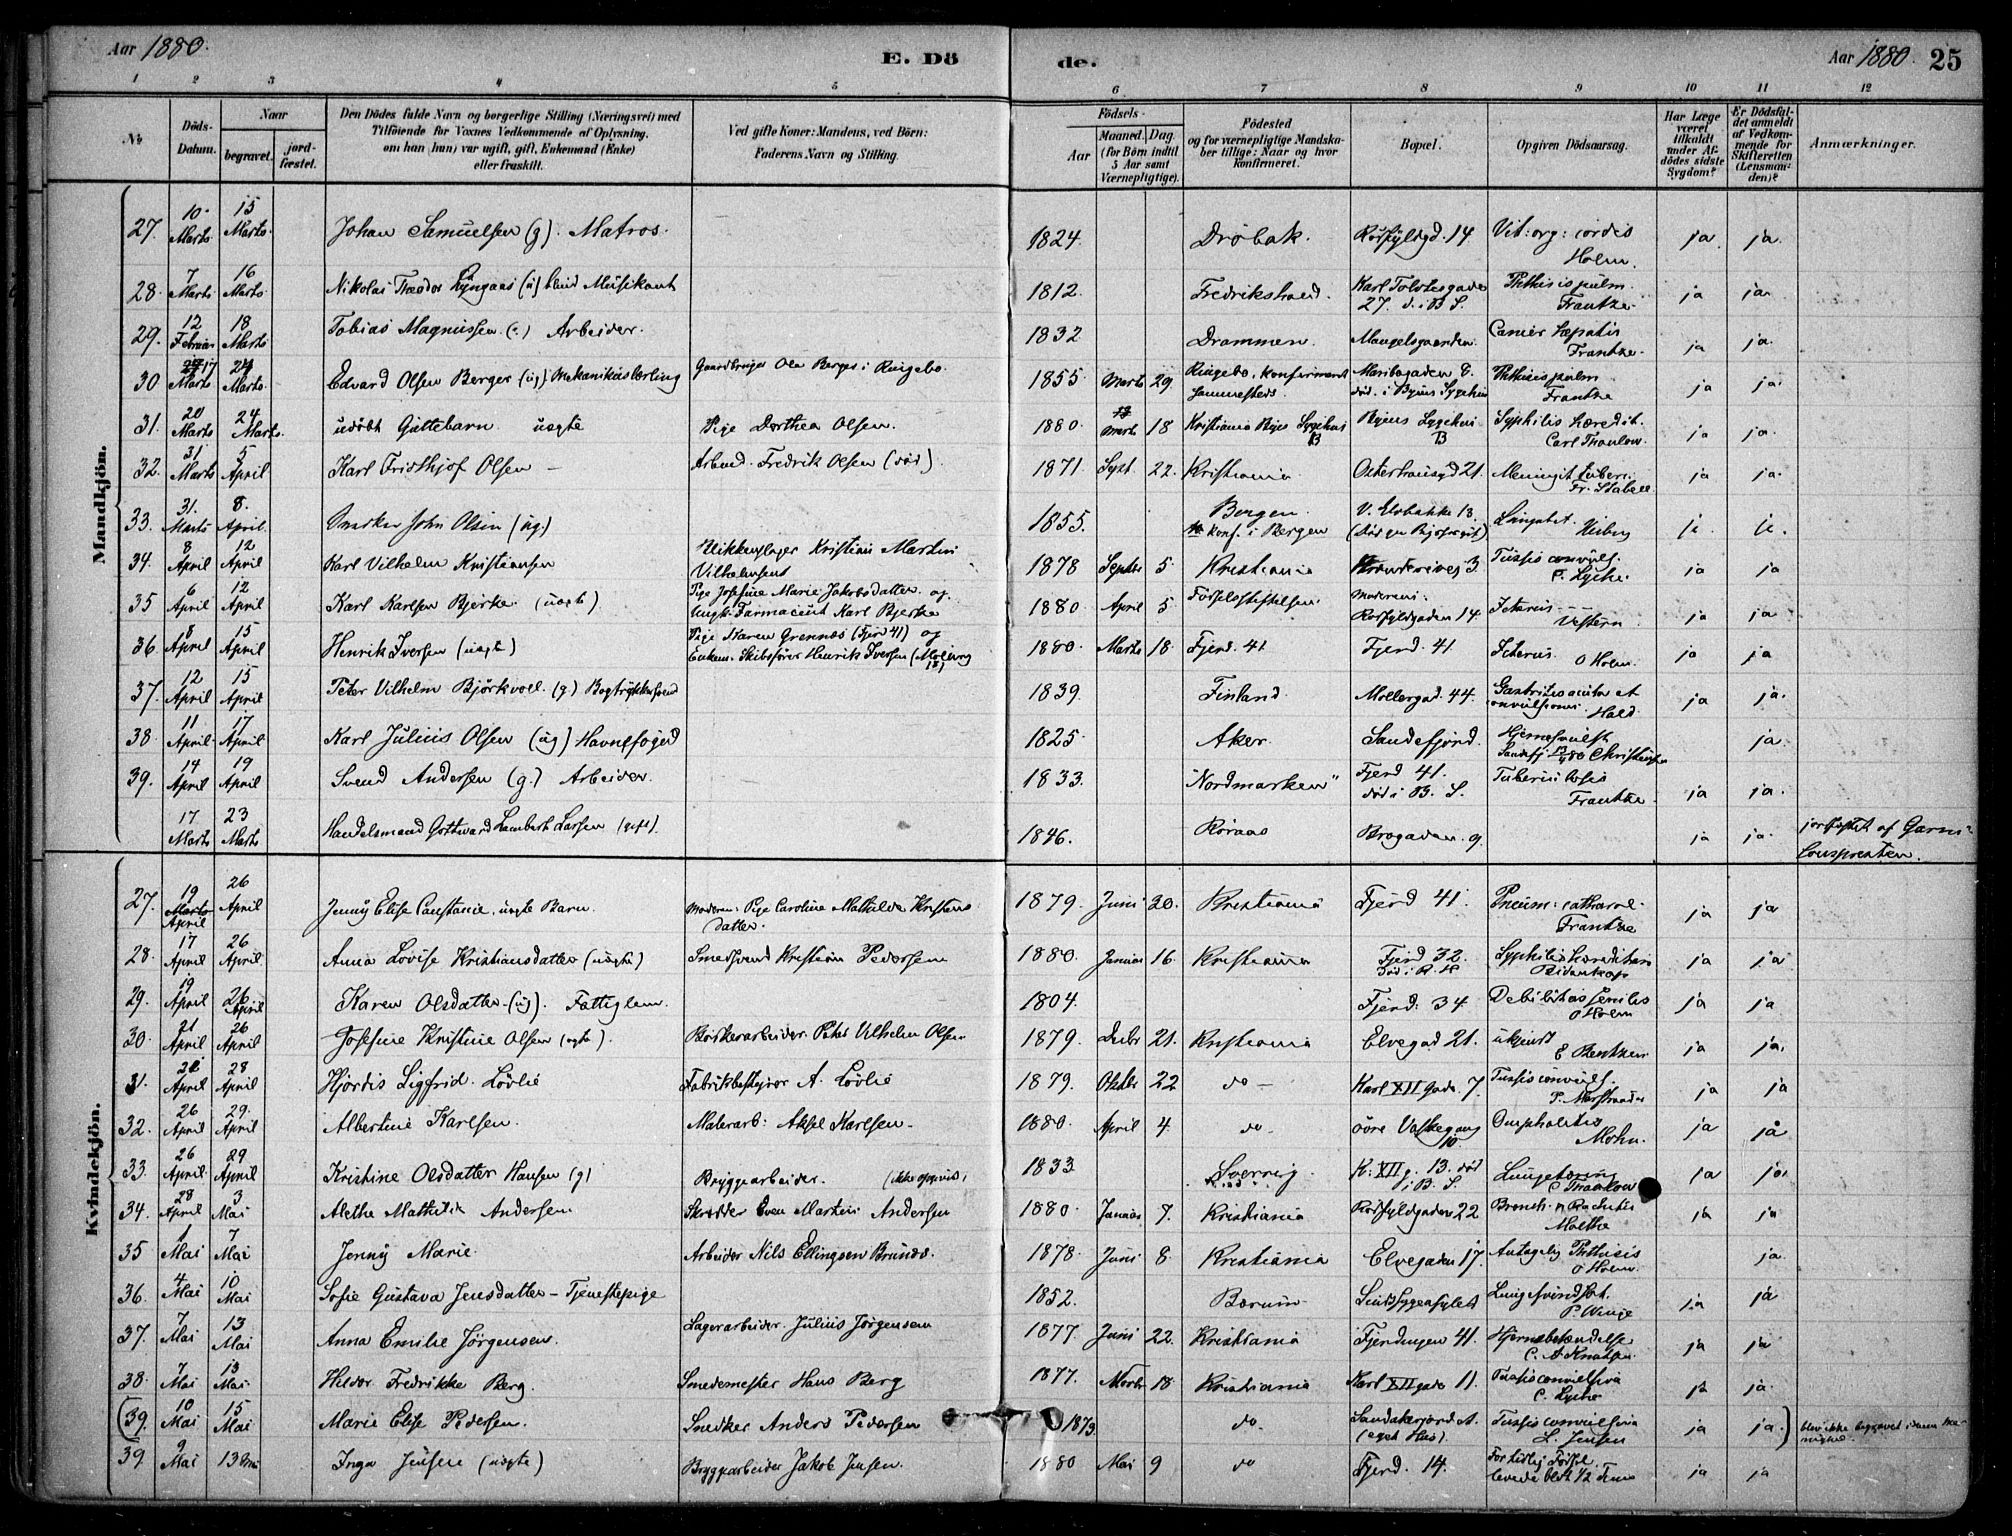 Aar 1880.
E. Dö
de.
Aar 1880.
25
1 2 3 4 5 6 7 8 9 10 11 12
No
Döds-Datum.
Naar
begravet.
jord-fæstet.
Den Dödes fulde Navn og borgerlige Stilling (Næringsvei) med
Tilföiende for Voxnes Vedkommende af Oplysning,
om han (hun) var ugift, gift, Enkemand (Enke)
eller fraskilt.
Ved gifte Koner: Mandens, ved Börn:
Faderens Navn og Stilling.
Födsels-
Aar
Maaned. Dag.
(for Börn indtil
5 Aar samt
Værnepligtige).
Födested
og for værnepligtige Mandska-
ber tillige: Naar og hvor
konfirmeret.
Bopæl.
Opgiven Dödsaarsag.
Har Læge
været
tilkaldt
under Af-
dödes sidste
Sygdom?
Er Dödsfal-
det anmeldt
af Vedkom-
mende for
Skifteretten
(Lensman-
den)?
Anmærkninger.
Mandkjön.
27. 10 Marts 15 Marts Johan Samuelsen (g). Matros. 1824. Dröbak. 14 Vit: org: cordis Holm. ja ja.
28. 7 Marts 16 Marts Nikolai Theodor (ug) blind Musikant 1812. Fredrikshald. 27. d. i B. S. Phthisis pulm. Frantze ja ja.
29. 12 Februar 18 Marts Tobias Magnussen Arbeider. 1832 Drammen. Mangelsgaarden. Cancer hepatis Frantze. ja ja.
30 17 Marts 24 Marts Edvard Olsen Berger (ug) Mekanikuslærling Gaardbruger Ole Berger i Ringebo. 1855 Marts 29 Ringebo, konfirmeret sammesteds. Maribogaden 8. död i Byens Sygehus Phthisis pulm Frantze ja ja.
31. 20 Marts 24 Marts. udöbt Guttebarn uægte Pige Dorthea Olsen. 1880. Marts 18 Kristiania Byes Sygehus B Byens Sygehus B Syphilis heredit. Carl Thaulow ja ja.
32. 31 Marts 5 April Karl Fridthjof Olsen - Arbeid. Fredrik Olsen (död). 1871 Sept. 22. Kristiania Osterhausgd 21. Meningit tuberc. Fr. Stabell. ja ja.
33. 31. Marts 8. April. Snedker John Olsen (ug.) 1855. Bergen. konf. i Bergen V. Elvbakke 13. ja ja.
34. 8 April 12 April Karl Vilhelm Kristiansen Kristian Martin Vilhelmsen 1878 Septbr 5. Kristiania 3. Tussis convuls. C. Lyche. ja ja
35 6 April 12 April Karl Karlsen Bjerke (uægte). Pige Josefine Marie Jakobsdatter og Ungk. Farmaceut Karl Bjerke 1880. April 5 Födselsstiftelsen. Moderens: 14. Icterus - Vestrum ja ja.
36. 8 April 15 April Henrik Iversen (uægte) Pige Karen Grennæs (Fjerd 41) og Enkem. Skibsförer Henrik Iversen 1880. Marts 18. Fjerd. 41 Fjerd. 41. Icterus. O Holm. ja ja
37. 12 April 15 April Peter Vilhelm Björkvoll. (g) Bogtrykkersvend 1839. Finland. Mollergad. 44. Gastritis acuta et convulsiones. Hald. ja ja.
38. 11 April. 17 April Karl Julius Olsen (ug) Havnefoged 1825. Aker. Sandefjord. Hjernesvulst ja.
39. 14 April 19 April Svend Andersen (g.) Arbeider. 1833. "Nordmarken" Fjerd 41. död i B. S. Tuberculosis Frantze. ja ja.
17 Marts 23 Marts Handelsmand Gottvard Lambert Larsen (gift). 1846. Röraas Brogaden. 9. ja ja. jordfæstet af Garnisonspresten.
Kvindekjön.
27. 19 April 26 April Jenny Elise Constanse, uægte Barn. Moderen: Pige Caroline Mathilde Kristensdatter. 1879. Juni 20. Kristiania Fjerd 41. Pneum: catharal. Frantze ja ja
28. 17 April 26 April. Anna Lovise Kristiansdatter (uægte) Smedsvend Kristian Pedersen 1880. Januar 16. Kristiania Fjerd 32. död i R. H Syphilis hereditaria Bidenkap ja ja
29. 19 April 26 April Karen Olsdatter (ug). Fattiglem. 1804. Fjerd: 34. Debilitas senilis O Holm ja ja
30. 21 April 26 April Josefine Kristine Olsen (ægte). Peter Vilhelm Olsen 1879. Decbr 21. Kristiania Elvegad 21. ukjendt E Bentzen ja ja.
31. April 28 April Hjördis Sigfrid Lövlie Fabrikbestyrer A. Lövlie 1879. Oktbr 22 do - Karl XII gade. 7. Tussis convuls. P. Marstrander ja ja
32. 26 April 29. April Albertine Karlsen. Malerarb: Aksel Karlsen - 1880. April 4 do - övre Vaskegang 10. Omphalitis Mohn. ja ja
33. 26 April 29 April Kristine Olsdatter Hansen (g) Bryggearbeider. (ikke opgivet) 1833. Sverrig K: XII g. 13. död i B. S. Lungetæring C Thaulow ja ja.
34. 28 April 3 Mai Alethe Mathilde Andersen Skrædder Even Martin Andersen 1880. Januar 7. Kristiania 22 Bronch. Rachitis Malthe ja ja
35 1 Mai 7 Mai Jenny Marie. Arbeider Nils Ellingsen Brunæs. 1878. Juni 8. Kristiania Elvegaden 17. Antagelig Phthisis O Holm. ja.
36. 4 Mai 10 Mai Sofie Gustava Jensdatter - Tjenestepige 1852. Bærum Sindssygeasylet Lungesvindsot. P. Winge ja ja
37. 7 Mai 13 Mai Anna Emilie Jörgensen. Lagerarbeider. Julius Jörgensen 1877. Juni 22. Kristiania Fjerdingen 41. Hjernebetændelse C. A Knutsen. ja ja
38. 7 Mai 13 Mai. Hildur Fredrikke Berg. Smedemester Hans Berg 1877. Novbr 18. Kristiania Karl XII gade 11. Tussis convulsiva C. Lyche ja ja.
(39. 10 Mai 15 Mai Marie Elise Pedersen. Snedker Anders Pedersen 1879. do. (eget Hus). Tussis convulsiva L. Jensen ja ja.) blev ikke begravet i denne Menighed.
39. 9 Mai 13 Mai Inga Jensen (uægte) Bryggearbeider Jakob Jensen. 1880 Mai 9 do Fjerd. 14. For tidlig Födsel. levede blot 1/2 Time ja ja